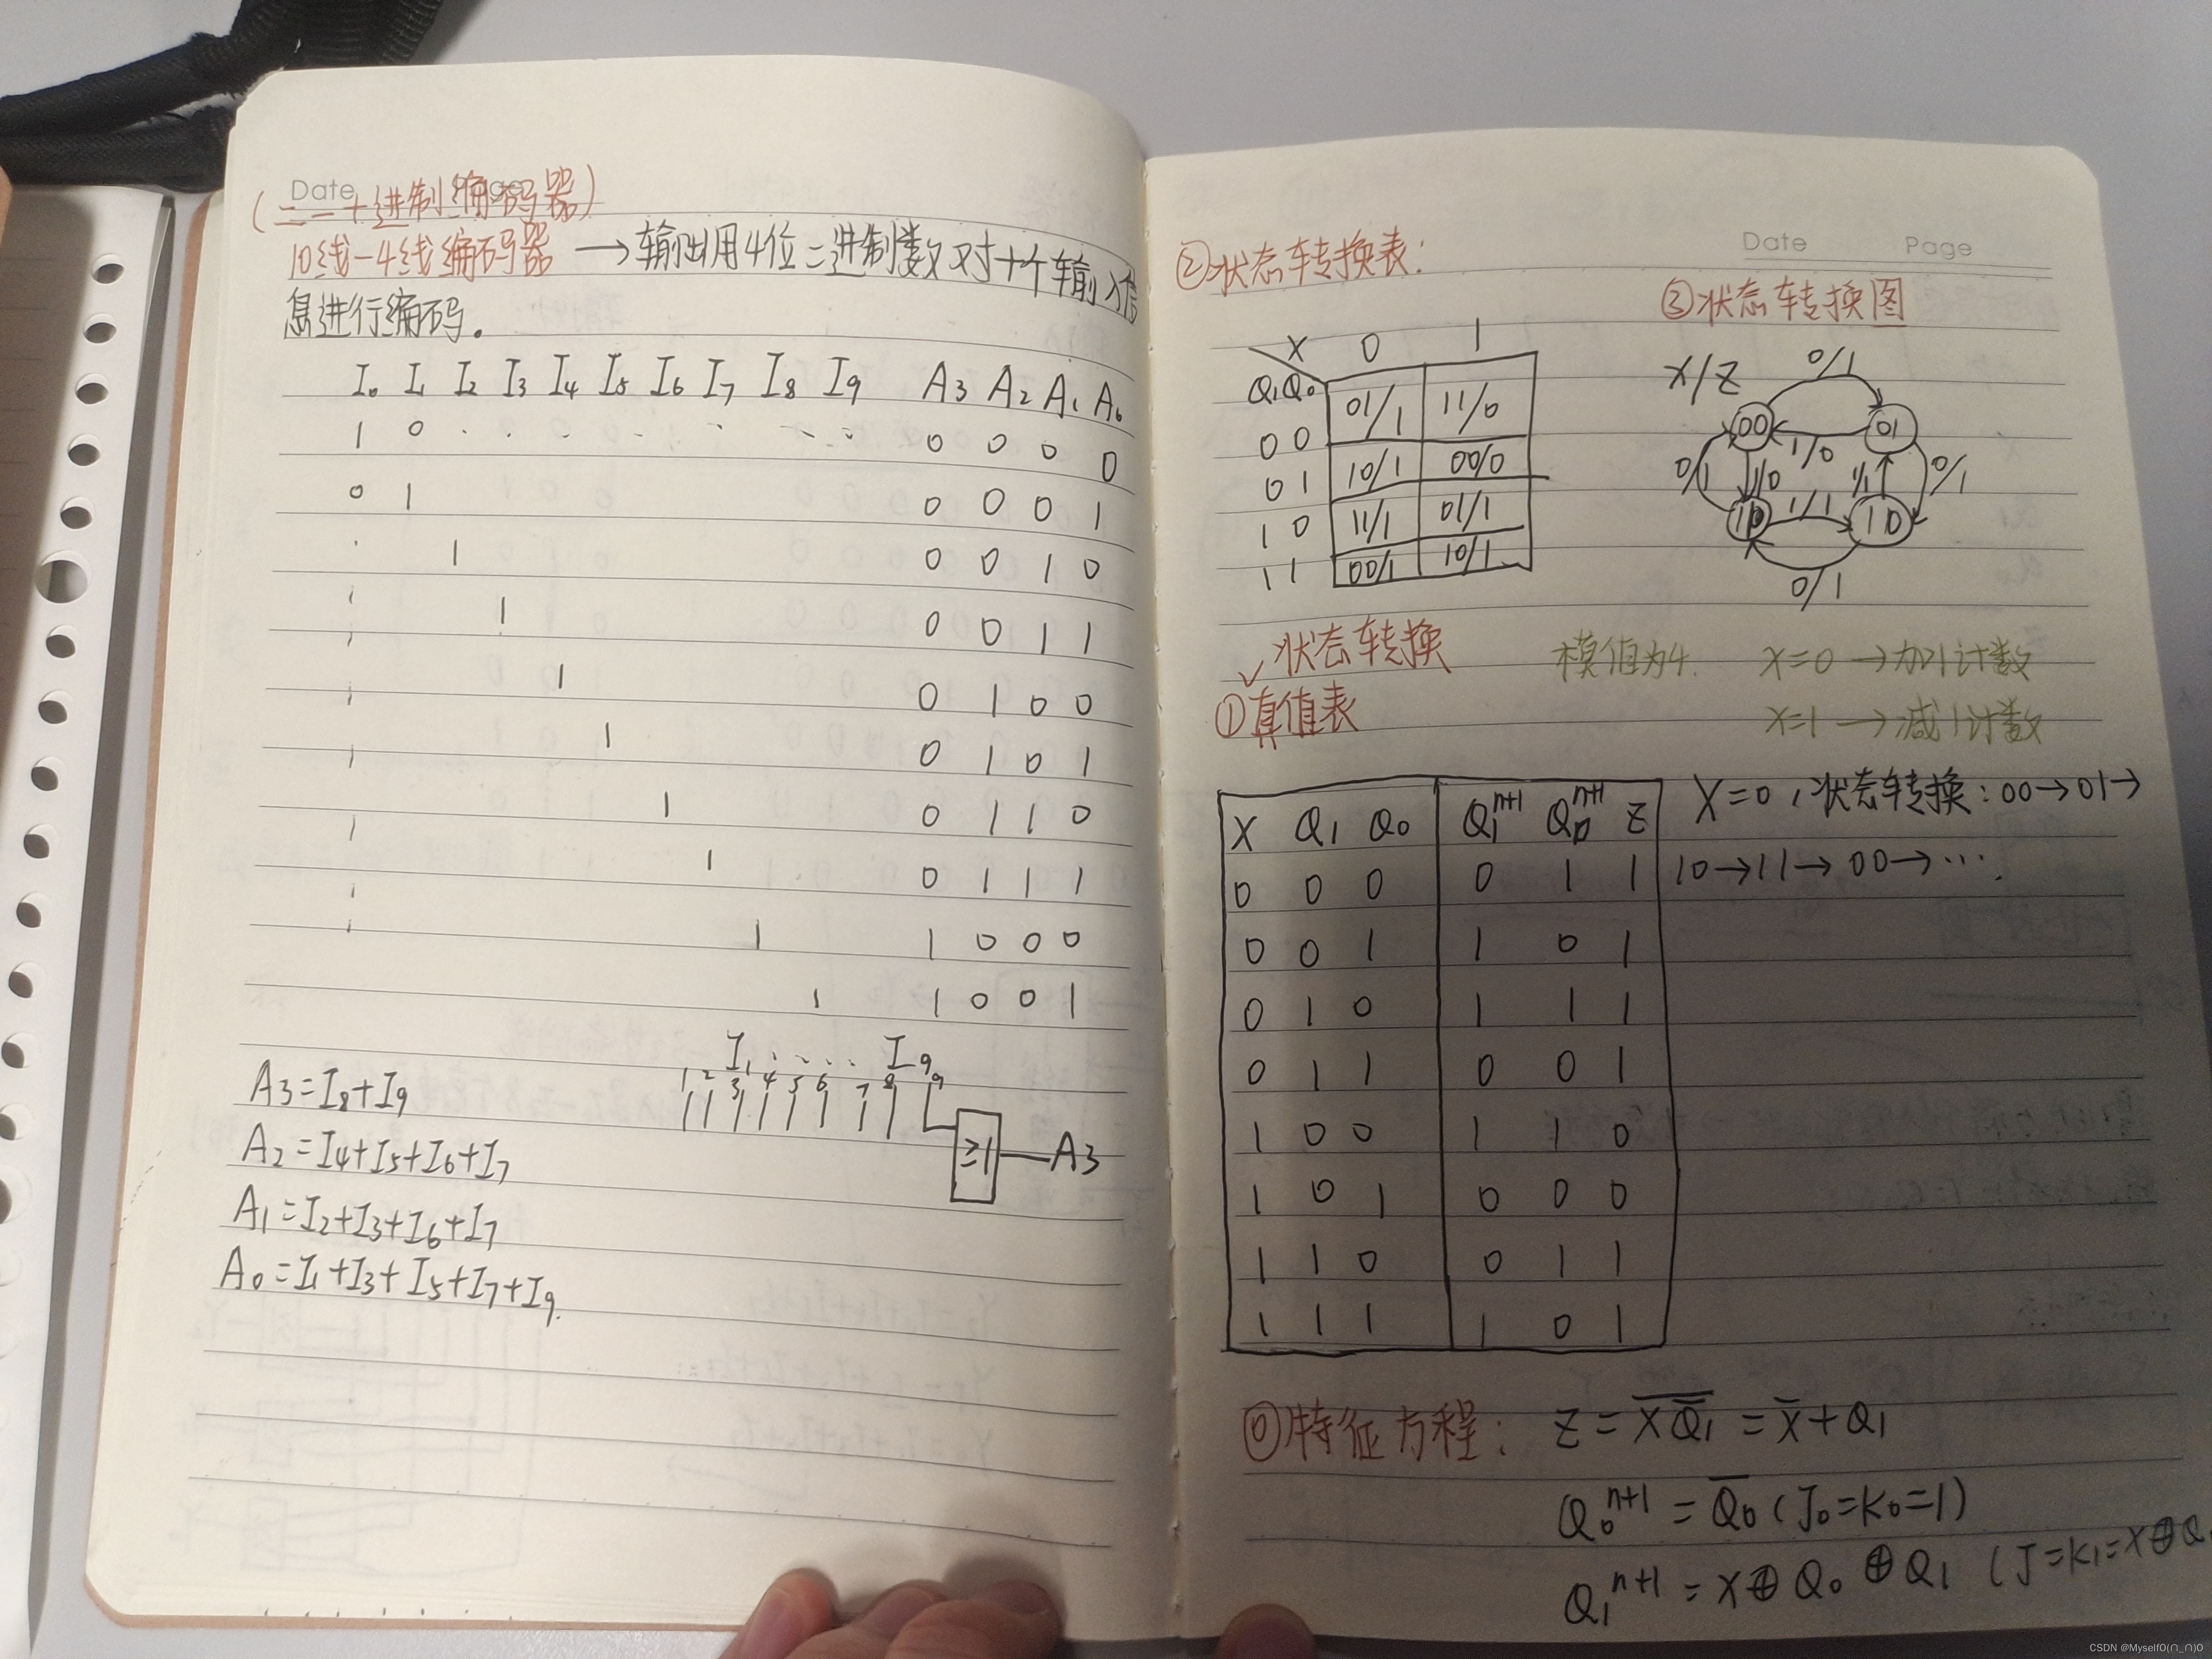 Date
(二—十进制编码器)
10线-4线编码器 → 输出用4位二进制数对十个输入信
息进行编码。
I₀ I₁ I₂ I₃ I₄ I₅ I₆ I₇ I₈ I₉ A₃ A₂ A₁ A₀
1 0 0 0 0 0
0 1 0 0 0 1
1 0 0 1 0
1 0 0 1 1
1 0 1 0 0
1 0 1 0 1
1 0 1 1 0
1 0 1 1 1
1 1 0 0 0
1 1 0 0 1
I₁ .... I₉
1 2 3 4 5 6 7 8 9
A₃=I₈+I₉
≥1 A₃
A₂=I₄+I₅+I₆+I₇
A₁=I₂+I₃+I₆+I₇
A₀=I₁+I₃+I₅+I₇+I₉.
Date Page
②状态转换表:
X 0 1
Q₁Q₀
0 0 01/1 11/0
0 1 10/1 00/0
1 0 11/1 01/1
1 1 00/1 10/1
③状态转换图
X/Z
0/1
00 01
1/0
0/1 1/0 1/1 0/1
1/1
10
0/1
✓状态转换
①真值表
模值为4. X=0 →加1计数
X=1 →减1计数
X Q₁ Q₀ Q₁ⁿ⁺¹ Q₀ⁿ⁺¹ Z
0 0 0 0 1 1
0 0 1 1 0 1
0 1 0 1 1 1
0 1 1 0 0 1
1 0 0 1 1 0
1 0 1 0 0 0
1 1 0 0 1 1
1 1 1 1 0 1
X=0,状态转换:00→01→
10→11→00→….
⓪特征方程: Z = \overline{X\overline{Q₁}} = \overline{X}+Q₁
Q₀ⁿ⁺¹ = \overline{Q₀} (J₀=K₀=1)
Q₁ⁿ⁺¹ = X⊕Q₀⊕Q₁ (J=K₁=X⊕Q
CSDN @MyselfO(∩_∩)O